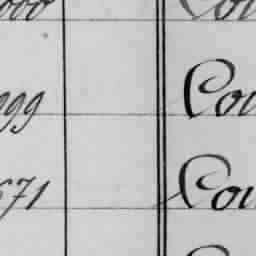 000 Cou
999 Cou
671 Cou